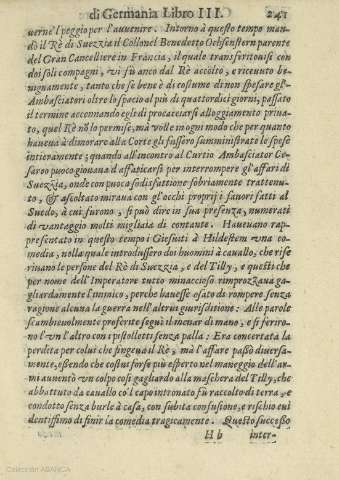 di Germania Libro III. 241
uerne'l peggio per l'auuenire. Intorno à questo tempo man-
dò il Rè di Suezzia il Collonel Benedetto Ochsenstern parente
del Gran Cancelliere in Francia, il quale transferitouisi con
doi soli compagni, vi fù anco dal Rè accolto, e riceuuto be-
nignamente, tanto che se bene è di costume di non spesare gl'
Ambasciatori oltre lo spatio al più di quattordici giorni, passato
il termine accennando egli di procacciarsi alloggiamento priua-
to, quel Rè nõ lo permise, mà volle in ogni modo che per quanto
haueua à dimorare alla Corte gli fussero sumministrate le spese
intieramente; quando all'incontro al Curtio Ambasciator Ce-
sareo poco giouana d'affaticarsi per interrompere gl'affari di
Suezzia, onde con poca sodisfattione sobriamente trattenu-
to, & ascoltato miraua con gl'occhi proprij i fauori fatti al
Suedo, à cui furono, si può dire in sua presenza, numerati
di vantaggio molti migliaia di contante. Haueuano rap-
presentato in questo tempo i Giesuiti à Hildestem vna co-
media, nella quale introdussero doi huomini à cauallo, che rife
riuano le persone del Rè di Suezzia, e del Tilly, e questi che
per nome dell'Imperatore tutto minaccioso rimprozzaua ga-
gliardamente l'inimico, perche hauesse osato di rompere senza
ragione alcuna la guerra nell'altrui giurisditione: Alle parole
scambieuolmente proferite seguì il menar di mano, e si feriro-
no l'vn l'altro con i pistolletti senza palla: Era concertata la
perdita per colui che fingeua il Rè, mà l'affare passò diuersa-
mente, essendo che costui forse più esperto nel maneggio dell'ar-
mi auuentò vn colpo così gagliardo alla maschera del Tilly, che
abbattuto da cauallo co'l capo intronato fù raccolto di terra, e
condotto senza burle à casa, con subita confusione, e rischio eui
dentissimo di finir la comedia tragicamente. Questo successo
H h inter-
Colección ABANCA